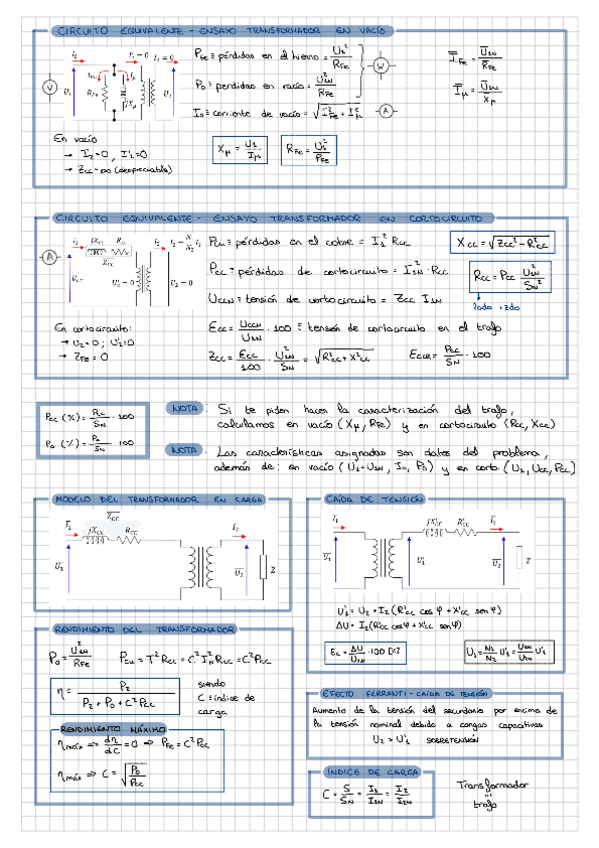 CIRCUITO EQUIVALENTE - ENSAYO TRANSFORMADOR EN VACÍO
PFe ≡ pérdidas en el hierro = U1²/RFe
P0 ≡ perdidas en vacío = U1N²/RFe
I0 ≡ corriente de vacío = √(I²Fe + I²μ)
W
A
V
ĪFe = Ū1N/R̄Fe
Īμ = Ū1N/X̄μ
I'2 = 0
I2 = 0
RFe
jXμ
U1
U2
En vacío
→ I2 = 0, I'2 = 0
→ Zcc = ∞ (despreciable)
Xμ = U1/Iμ
RFe = U1²/PFe
CIRCUITO EQUIVALENTE - ENSAYO TRANSFORMADOR EN CORTOCIRCUITO
A
jXCC RCC
ZCC
U1
U'2 = 0
U2 = 0
PCu ≡ pérdidas en el cobre = I1² Rcc
Pcc ≡ pérdidas de cortocircuito = I1N² · Rcc
UccN ≡ tensión de cortocircuito = Zcc I1N
Xcc = √(Zcc² - R²cc)
Rcc = Pcc U1N²/SN²
En cortocircuito:
→ U2 = 0 ; U'2 = 0
→ ZFe = 0
Ecc = UccN/U1N · 100 ≡ tensión de cortocircuito en el trafo
Zcc = Ecc/100 · U1N²/SN = √(R²cc + X²cc)
EccR = Pcc/SN · 100
Pcc (%) = Pcc/SN · 100
P0 (%) = P0/SN · 100
NOTA : Si te piden hacer la caracterización del trafo,
calculamos en vacío (Xμ, RFe) y en cortocircuito (Rcc, Xcc)
NOTA : Las características asignadas son datos del problema,
además de: en vacío (U1=U1N, I0, P0) y en corto (U1, Ucc, Pcc)
MODELO DEL TRANSFORMADOR EN CARGA
ZCC
I1 jXCC RCC I2
U'1
U2
Z
CAÍDA DE TENSIÓN
I1 jX'CC R'CC I2
U1
U'1
U2
Z
U'1 = U2 + I2 (R'cc cos φ + X'cc sen φ)
ΔU = I2 (R'cc cos φ + X'cc sen φ)
Ec = ΔU/U2N · 100 [%]
U1 = N1/N2 U'1 = U1N/U2N U'1
RENDIMIENTO DEL TRANSFORMADOR
P0 = U1N²/RFe
PCu = I² Rcc = C² I²N Rcc = C² Pcc
η = P2/(P2 + P0 + C²Pcc)
siendo
C ≡ índice de
carga
RENDIMIENTO MÁXIMO
ηmáx ⇒ dη/dC = 0 ⇒ PFe = C² Pcc
ηmáx ⇒ C = √(P0/Pcc)
EFECTO FERRANTI - CAÍDA DE TENSIÓN
Aumento de la tensión del secundario por encima de
la tensión nominal debido a cargas capacitivas
U2 > U'1 SOBRETENSIÓN
ÍNDICE DE CARGA
C = S/SN = I1/I1N = I2/I2N
Transformador
=
trafo